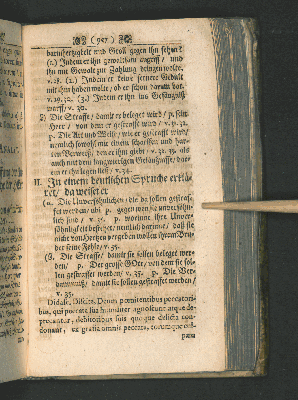 (957)
barmhertzigkeit und Groll gegen ihn sehen/
(2.) Indem er ihn gewaltsam angreff/ und
ihn mit Gewalt zur Zahlung bringen wolte.
v. 28. (2.) Indem er keine fernere Gedult
mit ihm haben wolte/ ob er schon darum bat.
v. 29. 30. (3.) Indem er ihn ins Gefängniß
warff/ v. 30.
2) Die Straffe/ damit er beleget wird/ p. sein
Herr/ von dem er gestrafft wird/ v. 32. 34.
p. Die Art und Weise/ wie er gestrafft wird/
nemlich sowohl mit einem scharffen und har-
ten Verweiß, den er ihm giebt/ v. 32. 33. als
auch mit dem Gefängnisse/ dar-
ein er ihn legen ließ/ v. 34.
II. In einem deutlichen Spruche erklä-
ret/ da weiset er
(α. Die Unversöhnlichen/ die da sollen gestraf-
fet werden/ p. gegen wen sie unversöhn-
lich sind/ v. 35. p. worinne ihre Unver-
söhnlichkeit bestehet/ nemlich darinne/ daß sie
nicht von Hertzen vergeben wollen ihrem Bru-
der seine Fehler/ v. 35.
(β. Die Straffe/ damit sie sollen beleget wer-
den/ p. Der grosse GOtt/ von dem sie sol-
len gestraffet werden/ v. 35. p. Die Ver-
damniß/ damit sie sollen gestraffet werden/
v. 35.
Didasc. Disicta. Deum poenitentibus peccatori-
bus, qui peccata sua humiliter agnoscunt atque de-
precantur, debitoribus suis quoque delicta con-
donant, ex gratia omnia peccata,